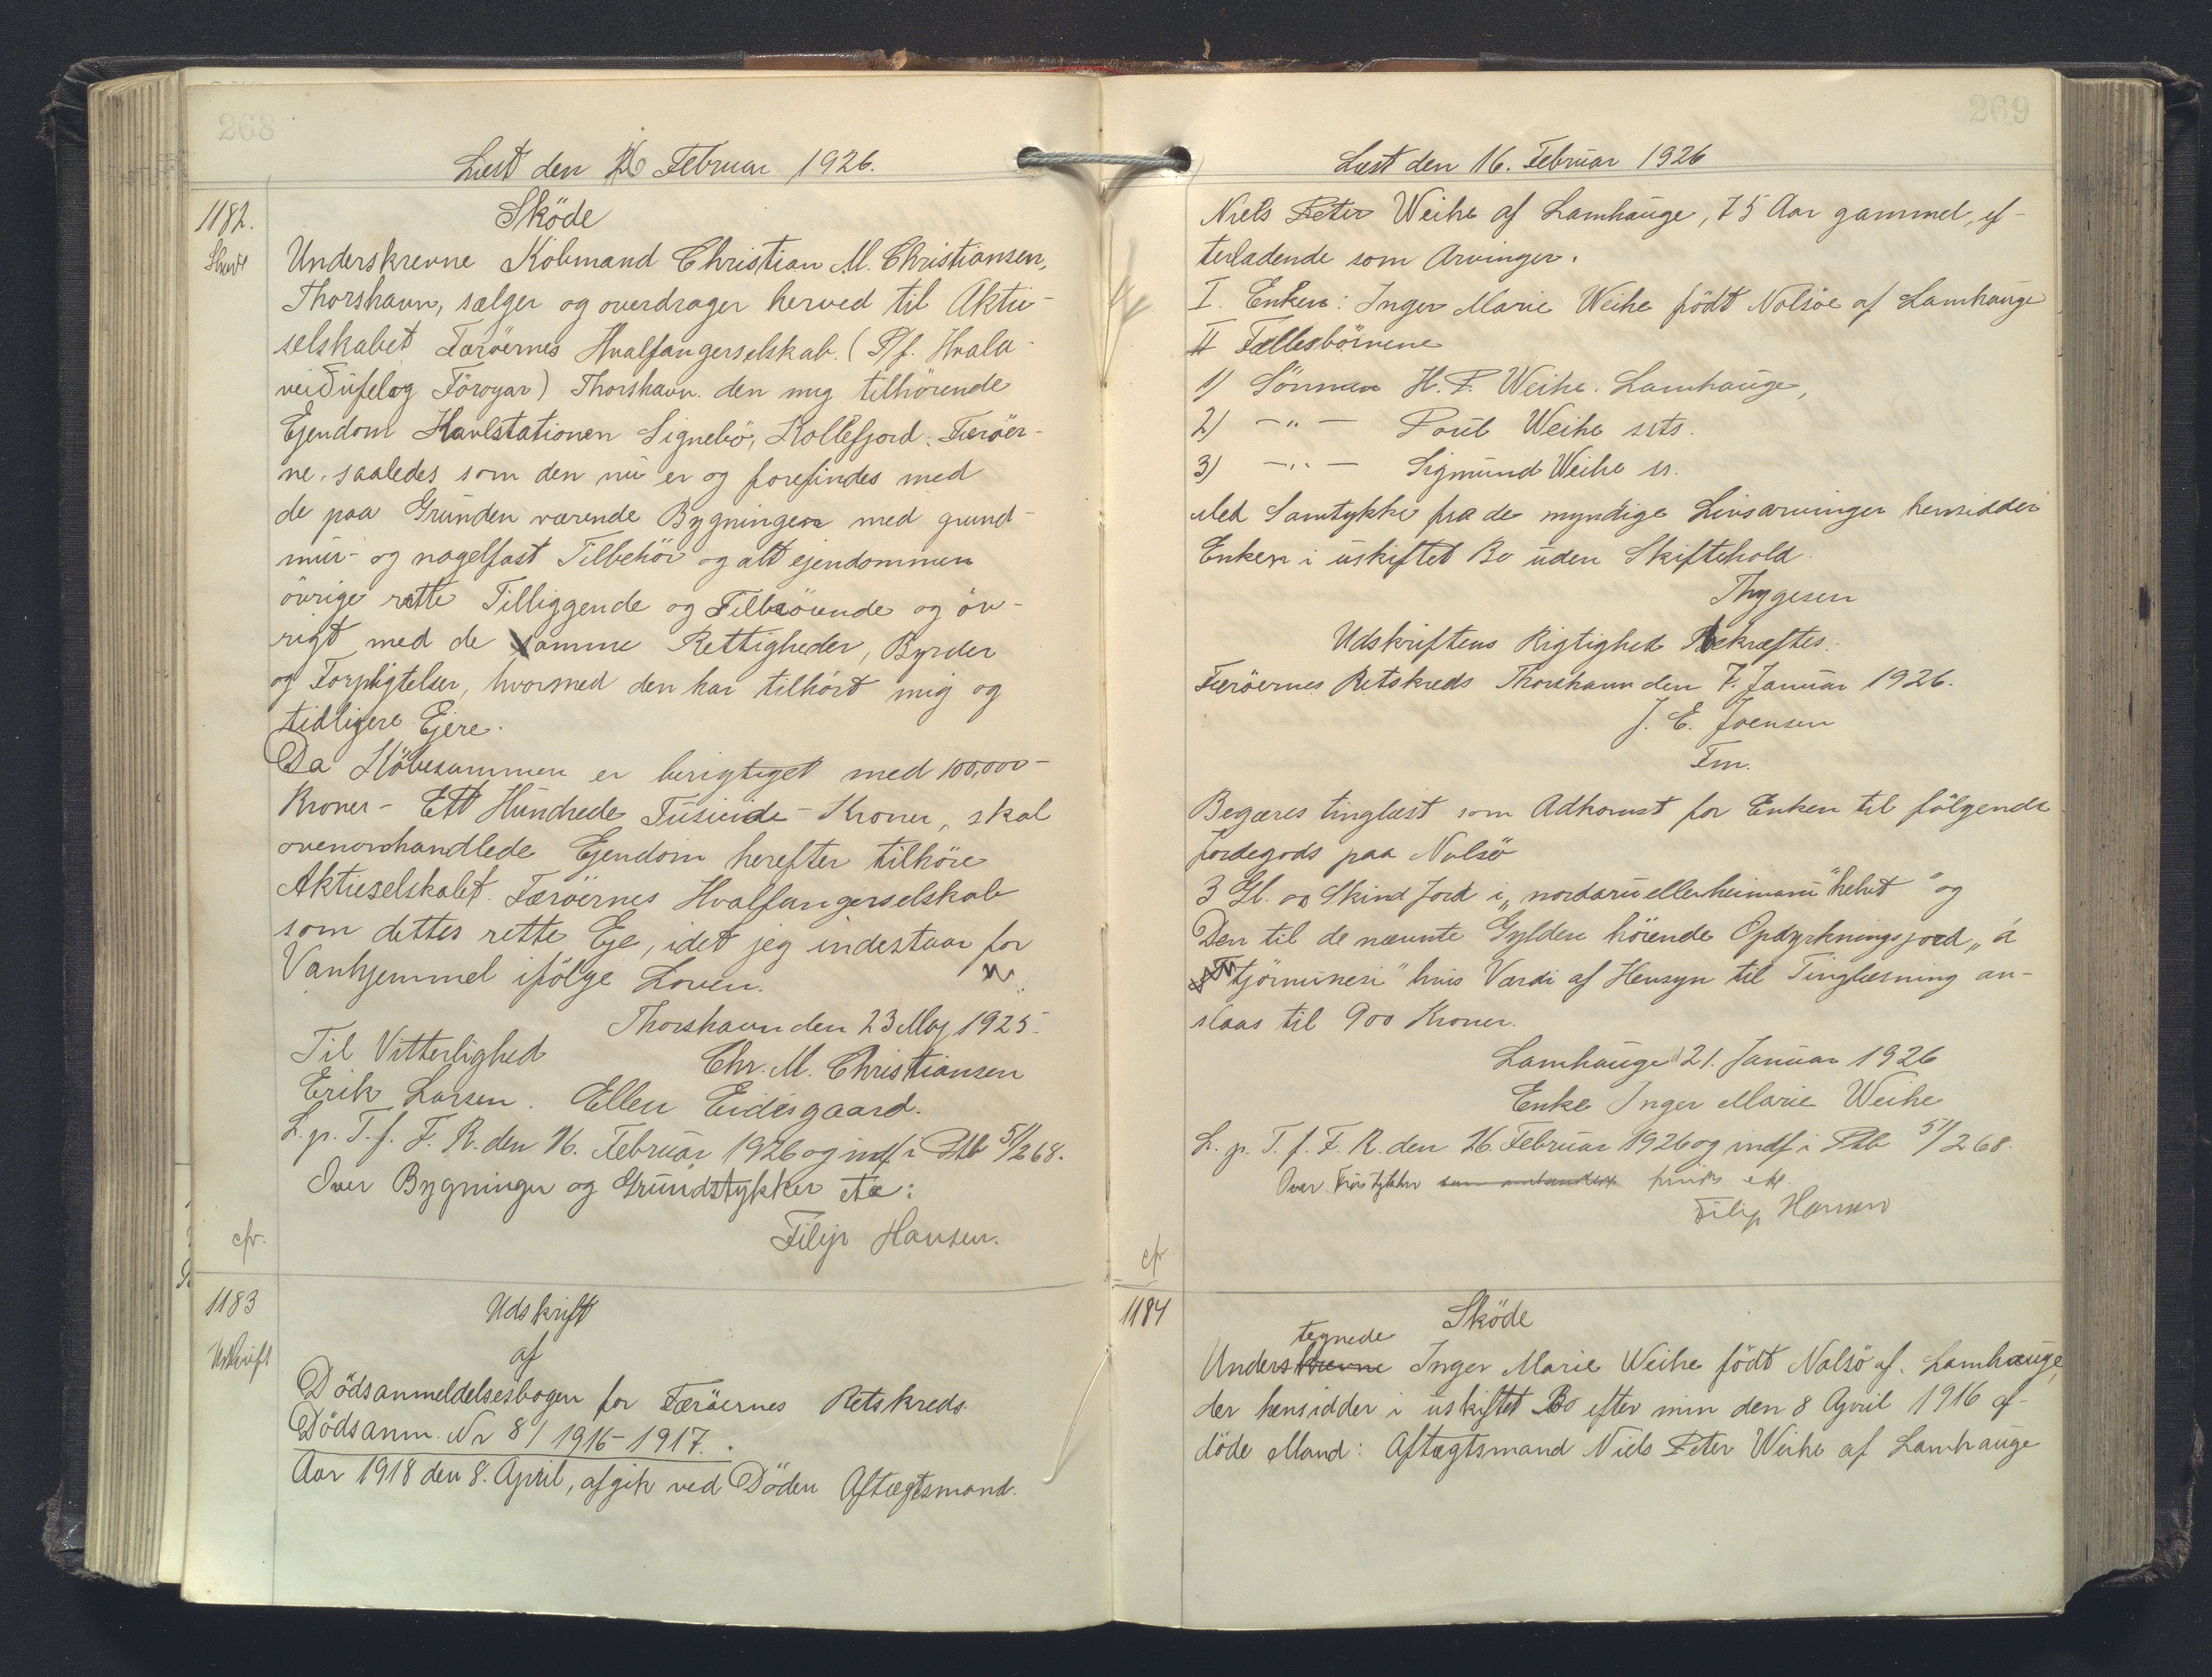 268
Læst den 16 Februar 1926.
1182.
Sköde
Underskrevne Köbmand Christian M. Christiansen,
Thorshavn, sælger og overdrager herved til Aktie-
selskabet Færöernes Hvalfangerselskab. (P/f. Hvala-
veiðufelog Föroyar) Thorshavn. den mig tilhörende
Ejendom Havlstationen Signebö, Kollefjord. Færöer-
ne. saaledes som den nu er og forefindes med
de paa Grunden værende Bygninger med grund-
mur- og nagelfast Tilbehör og alt ejendommen
övrige rette Tilliggende og Tilhörende og öv-
rigt med de samme Rettigheder, Byrder
og Forpligtelser, hvormed den har tilhört mig og
tidligere Ejere.
Da Köbesummen er berigtiget med 100,000-
Kroner - Ett Hundrede Tusinde - Kroner, skal
ovenomhandlede Ejendom herefter tilhöre
Aktieselskabet. Færöernes Hvalfangerselskab
som dettes rette Eje, idet jeg indestaar for
Vanhjemmel ifölge Loven.
Thorshavn den 23 Maj 1925.
Til Vitterlighed Chr. M. Christiansen
Erik Larsen. Ellen Eidesgaard.
L. p. T. f. F. R. den 16. Februar 1926 og indf i Ptb 51/268.
Over Bygninger og Grundstykker etc:
Filip Hansen.
cfr.
1183
Udskrift
Udskrift
af
Dödsanmeldelsesbogen for Færöernes Retskreds.
Dödsanm. Nr 8/1916-1917.
Aar 1918 den 8. April, afgik ved Döden Aftægtsmand.
269
Læst den 16. Februar 1926
Niels Peter Weihe af Lamhauge, 75 Aar gammel, ef-
terladende som Arvinger.
I. Enken: Inger Marie Weihe födt Nolsöe af Lamhauge
II Fællesbörnene
1) Sönnen H. P. Weihe. Lamhauge,
2) -"- Poul Weihe sets.
3) -"- Sigmund Weihe ss.
Med Samtykke fra de myndige Livsarvinger hensidder
Enken i uskiftet Bo uden Skiftehold.
Thygesen
Udskriftens Rigtighed Bekræftes.
Færöernes Retskreds Thorshavn den 7. Januar 1926.
J. E. Joensen
Fm.
Begæres tinglæst som Adkomst for Enken til fölgende
Jordegods paa Nolsö
3 Gl. 00 Skind Jord i "nordaru ellerheimaru "helvt" og
Den til de nævnte Gylden hörende Opdyrkningsjord "á
Stjörnunesi" hvis Værdi af Hensyn til Tinglæsning an-
slaas til 900 Kroner.
Lamhauge 21. Januar 1926
Enke Inger Marie Weihe
L. p. T. f. F. R. den 16. Februar 1926 og indf i Ptb 51/268.
Over
Filip Hansen
cfr
1184
Sköde
tegnede
Underskrevne Inger Marie Weihe födt Nolsö af. Lamhauge,
der hensidder i uskiftet Bo efter min den 8 April 1916 af-
döde Mand: Aftægtsmand Niels Peter Weihe af Lamhauge